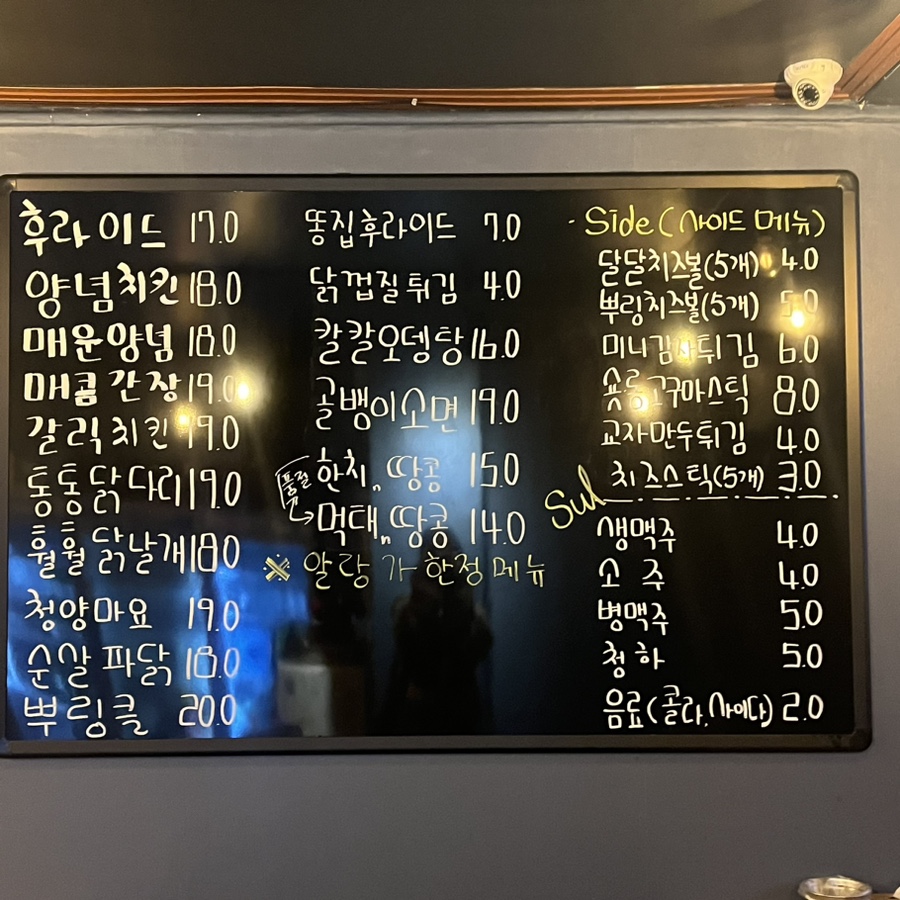 후라이드 17.0
양념치킨 18.0
매운양념 18.0
매콤간장 19.0
갈릭치킨 19.0
통통닭다리 19.0
훨훨닭날개 18.0
청양마요 19.0
순살파닭 18.0
뿌링클 20.0
똥집후라이드 7.0
닭껍질튀김 4.0
칼칼오뎅탕 16.0
골뱅이소면 19.0
한치,, 땅콩 15.0
품절
먹태,, 땅콩 14.0
※ 알랑가 한정메뉴
- Side (사이드 메뉴)
달달치즈볼(5개) 4.0
뿌링치즈볼(5개) 5.0
미니감자튀김 6.0
고구마스틱 8.0
교자만두튀김 4.0
치즈스틱(5개) 3.0
Sul
생맥주 4.0
소주 4.0
병맥주 5.0
청하 5.0
음료(콜라,사이다) 2.0